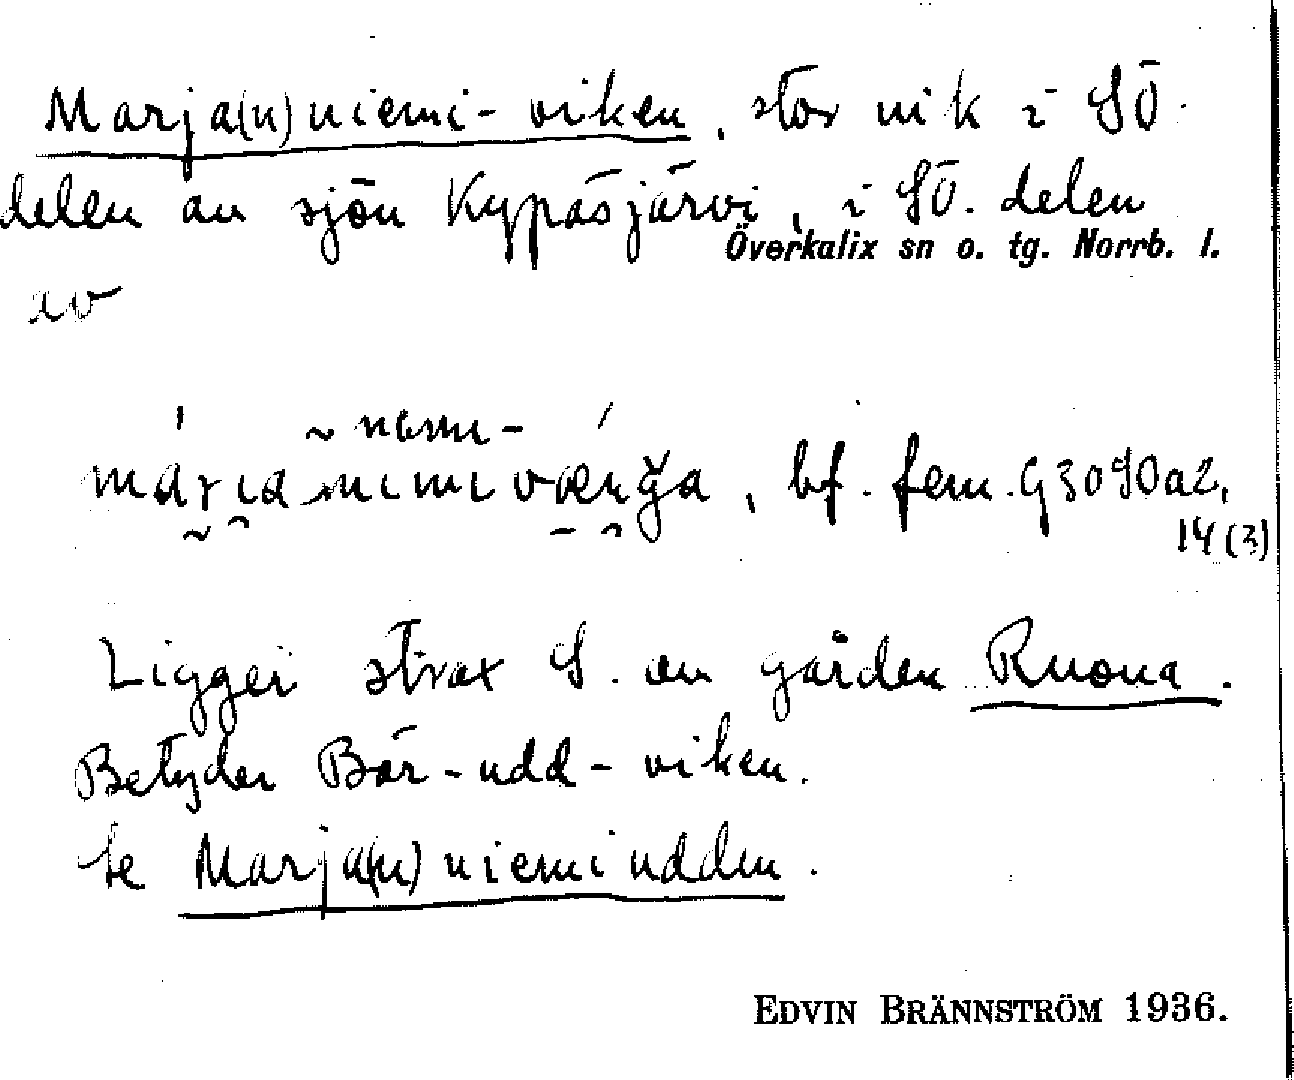 Marja(n)niemi-viken, stor vik i SÖ.
delen av sjön Kypäsjärvi, i SÖ. delen
Överkalix sn o. tg. Norrb. l.
av
~ nɛmɩ-
márɩanɩmɩvæŋ̌ga, bf. fem. G3090a2,
14(3)
Ligger strax S. om gården Ruona.
Betyder Bär-udd-viken.
Se Marja(n)niemiudden.
EDVIN BRÄNNSTRÖM 1936.